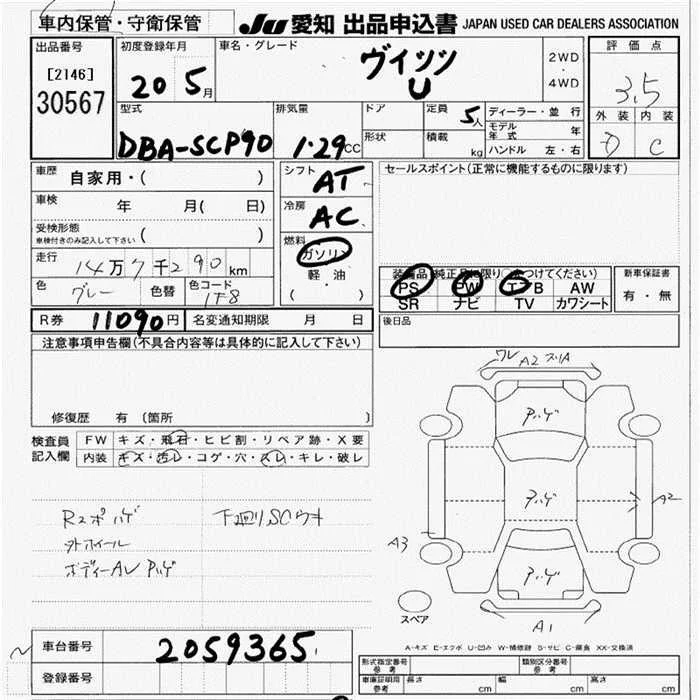 車内保管・守衛保管
JU 愛知 出品申込書 JAPAN USED CAR DEALERS ASSOCIATION
出品番号
[2146]
30567
初度登録年月
20 5月
車名・グレード
ヴィッツ
U
2WD
・
4WD
評価点
3.5
外装 内装
D C
型式
DBA-SCP90
排気量
1.29CC
ドア
形状
定員
5人
積載
kg
ディーラー・並行
モデル年式 年
ハンドル 左・右
車歴
自家用・( )
車検 年 月( 日)
受検形態
車検付きのみ記入して下さい ( )
走行 14万7千290km
色 グレー 色替 色コード 1F8
シフト AT
冷房 AC
燃料
ガソリン
軽油
( ・ )
セールスポイント(正常に機能するものに限ります)
装備品(純正品に限り○をつけてください)
PS PW エアB AW
SR ナビ TV カワシート
新車保証書
有・無
R券 11090円 名変通知期限 月 日
後日品
注意事項申告欄(不具合内容等は具体的に記入して下さい)
修復歴 有 (箇所 )
検査員記入欄
FW キズ・飛石・ヒビ割・リペア跡・X要
内装 キズ・汚レ・コゲ・穴・スレ・キレ・破レ
Rスポ ハゲ
外ホイール
ボディーAU Pハゲ
下廻りSCウキ
ワレ A2 スリA
Pハゲ
Pハゲ
Pハゲ
A3
A2
A1
スペア
A-キズ E-エクボ U-凹ミ W-補修跡 S-サビ C-腐食 XX-交換済
車台番号 2059365
登録番号
形式指定番号
参考
類別区分番号
参考
車庫証明用
参考
長さ cm 幅 cm 高さ cm